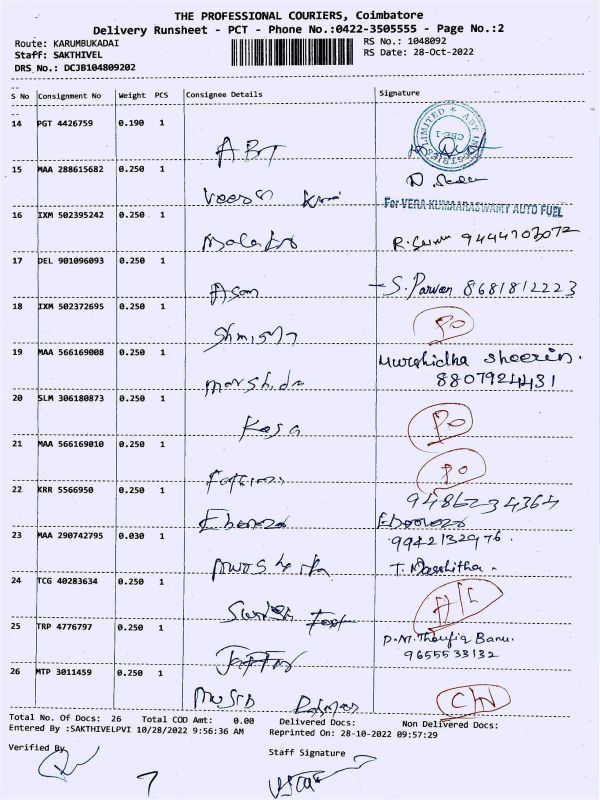 THE PROFESSIONAL COURIERS, Coimbatore
Delivery Runsheet - PCT - Phone No.:0422-3505555 - Page No.:2
Route: KARUMBUKADAI
RS No.: 1048092
Staff: SAKTHIVEL
RS Date: 28-Oct-2022
DRS No.: DCJB104809202
S No Consignment No Weight PCS Consignee Details Signature
14 PGT 4426759 0.190 1 ABT
ABT INDUSTRIES LIMITED
CBE-1
15 MAA 288615682 0.250 1
For VERA KUMAARASWAMY AUTO FUEL
16 IXM 502395242 0.250 1
9444703072
17 DEL 901096093 0.250 1 Asan S. Parvan 8681812223
18 IXM 502372695 0.250 1 PO
19 MAA 566169008 0.250 1 Murshidha sheerin.
8807924431
20 SLM 306180873 0.250 1 Kasa PO
21 MAA 566169010 0.250 1 PO
22 KRR 5566950 0.250 1 9486234364
23 MAA 290742795 0.030 1 9942132976.
24 TCG 40283634 0.250 1
25 TRP 4776797 0.250 1 P.M. Thoufiq Banu.
9655533132
26 MTP 3011459 0.250 1
Total No. Of Docs: 26 Total COD Amt: 0.00 Delivered Docs: Non Delivered Docs:
Entered By :SAKTHIVELPVI 10/28/2022 9:56:36 AM Reprinted On: 28-10-2022 09:57:29
Verified By
Staff Signature